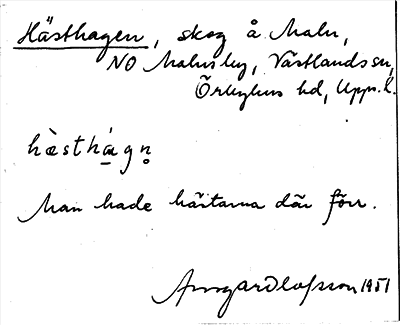 Hästhagen, skog å Maln,
NO Malnsby, Västlands sn,
Örbyhus hd, Upps. l.
hὲsthάgn̥
Man hade hästarna där förr.
Olofsson 1951